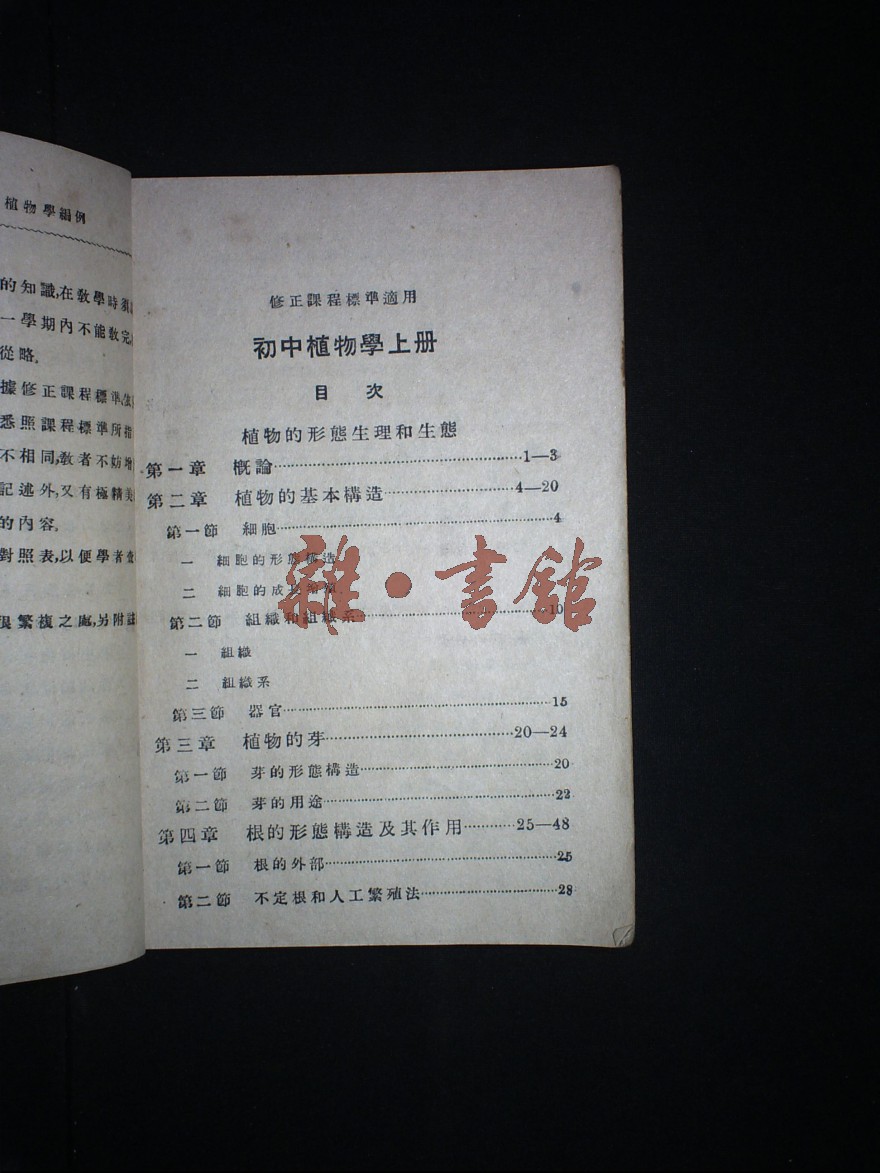 植物學編例
的知識,在敎學時須
一學期內不能敎完
從略.
據修正課程標準,
悉照課程標準所指
不相同,敎者不妨增
記述外,又有極精美
的內容.
對照表,以便學者查
很繁複之處,另附註
修正課程標準適用
初中植物學上册
目 次
植物的形態生理和生態
第一章 槪論……1—3
第二章 植物的基本構造……4—20
第一節 細胞……4
一 細胞的形態構造
二 細胞的成長
第二節 組織和組織系……10
一 組織
二 組織系
第三節 器官……15
第三章 植物的芽……20—24
第一節 芽的形態構造……20
第二節 芽的用途……22
第四章 根的形態構造及其作用……25—48
第一節 根的外部……25
第二節 不定根和人工繁殖法……28
雜·書館